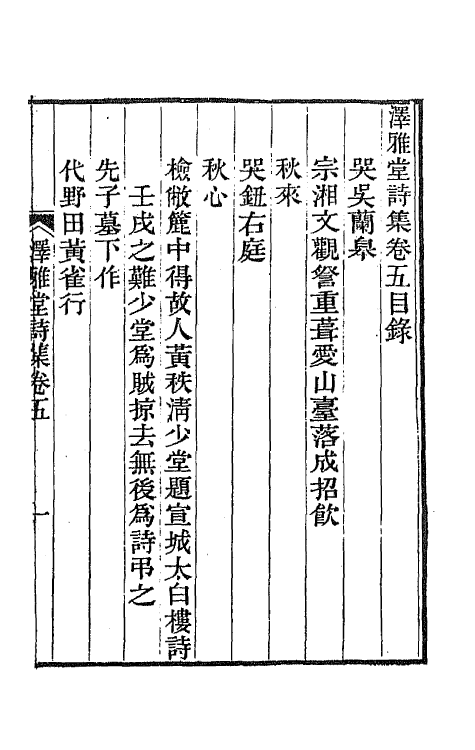 澤雅堂詩集卷五目錄
哭吳蘭皋
宗湘文觀詧重葺愛山臺落成招飲
秋來
哭鈕右庭
秋心
檢敝簏中得故人黃秩淸少堂題宣城太白樓詩
壬戌之難少堂爲賊掠去無後爲詩弔之
先子墓下作
代野田黃雀行
澤雅堂詩集卷五
一